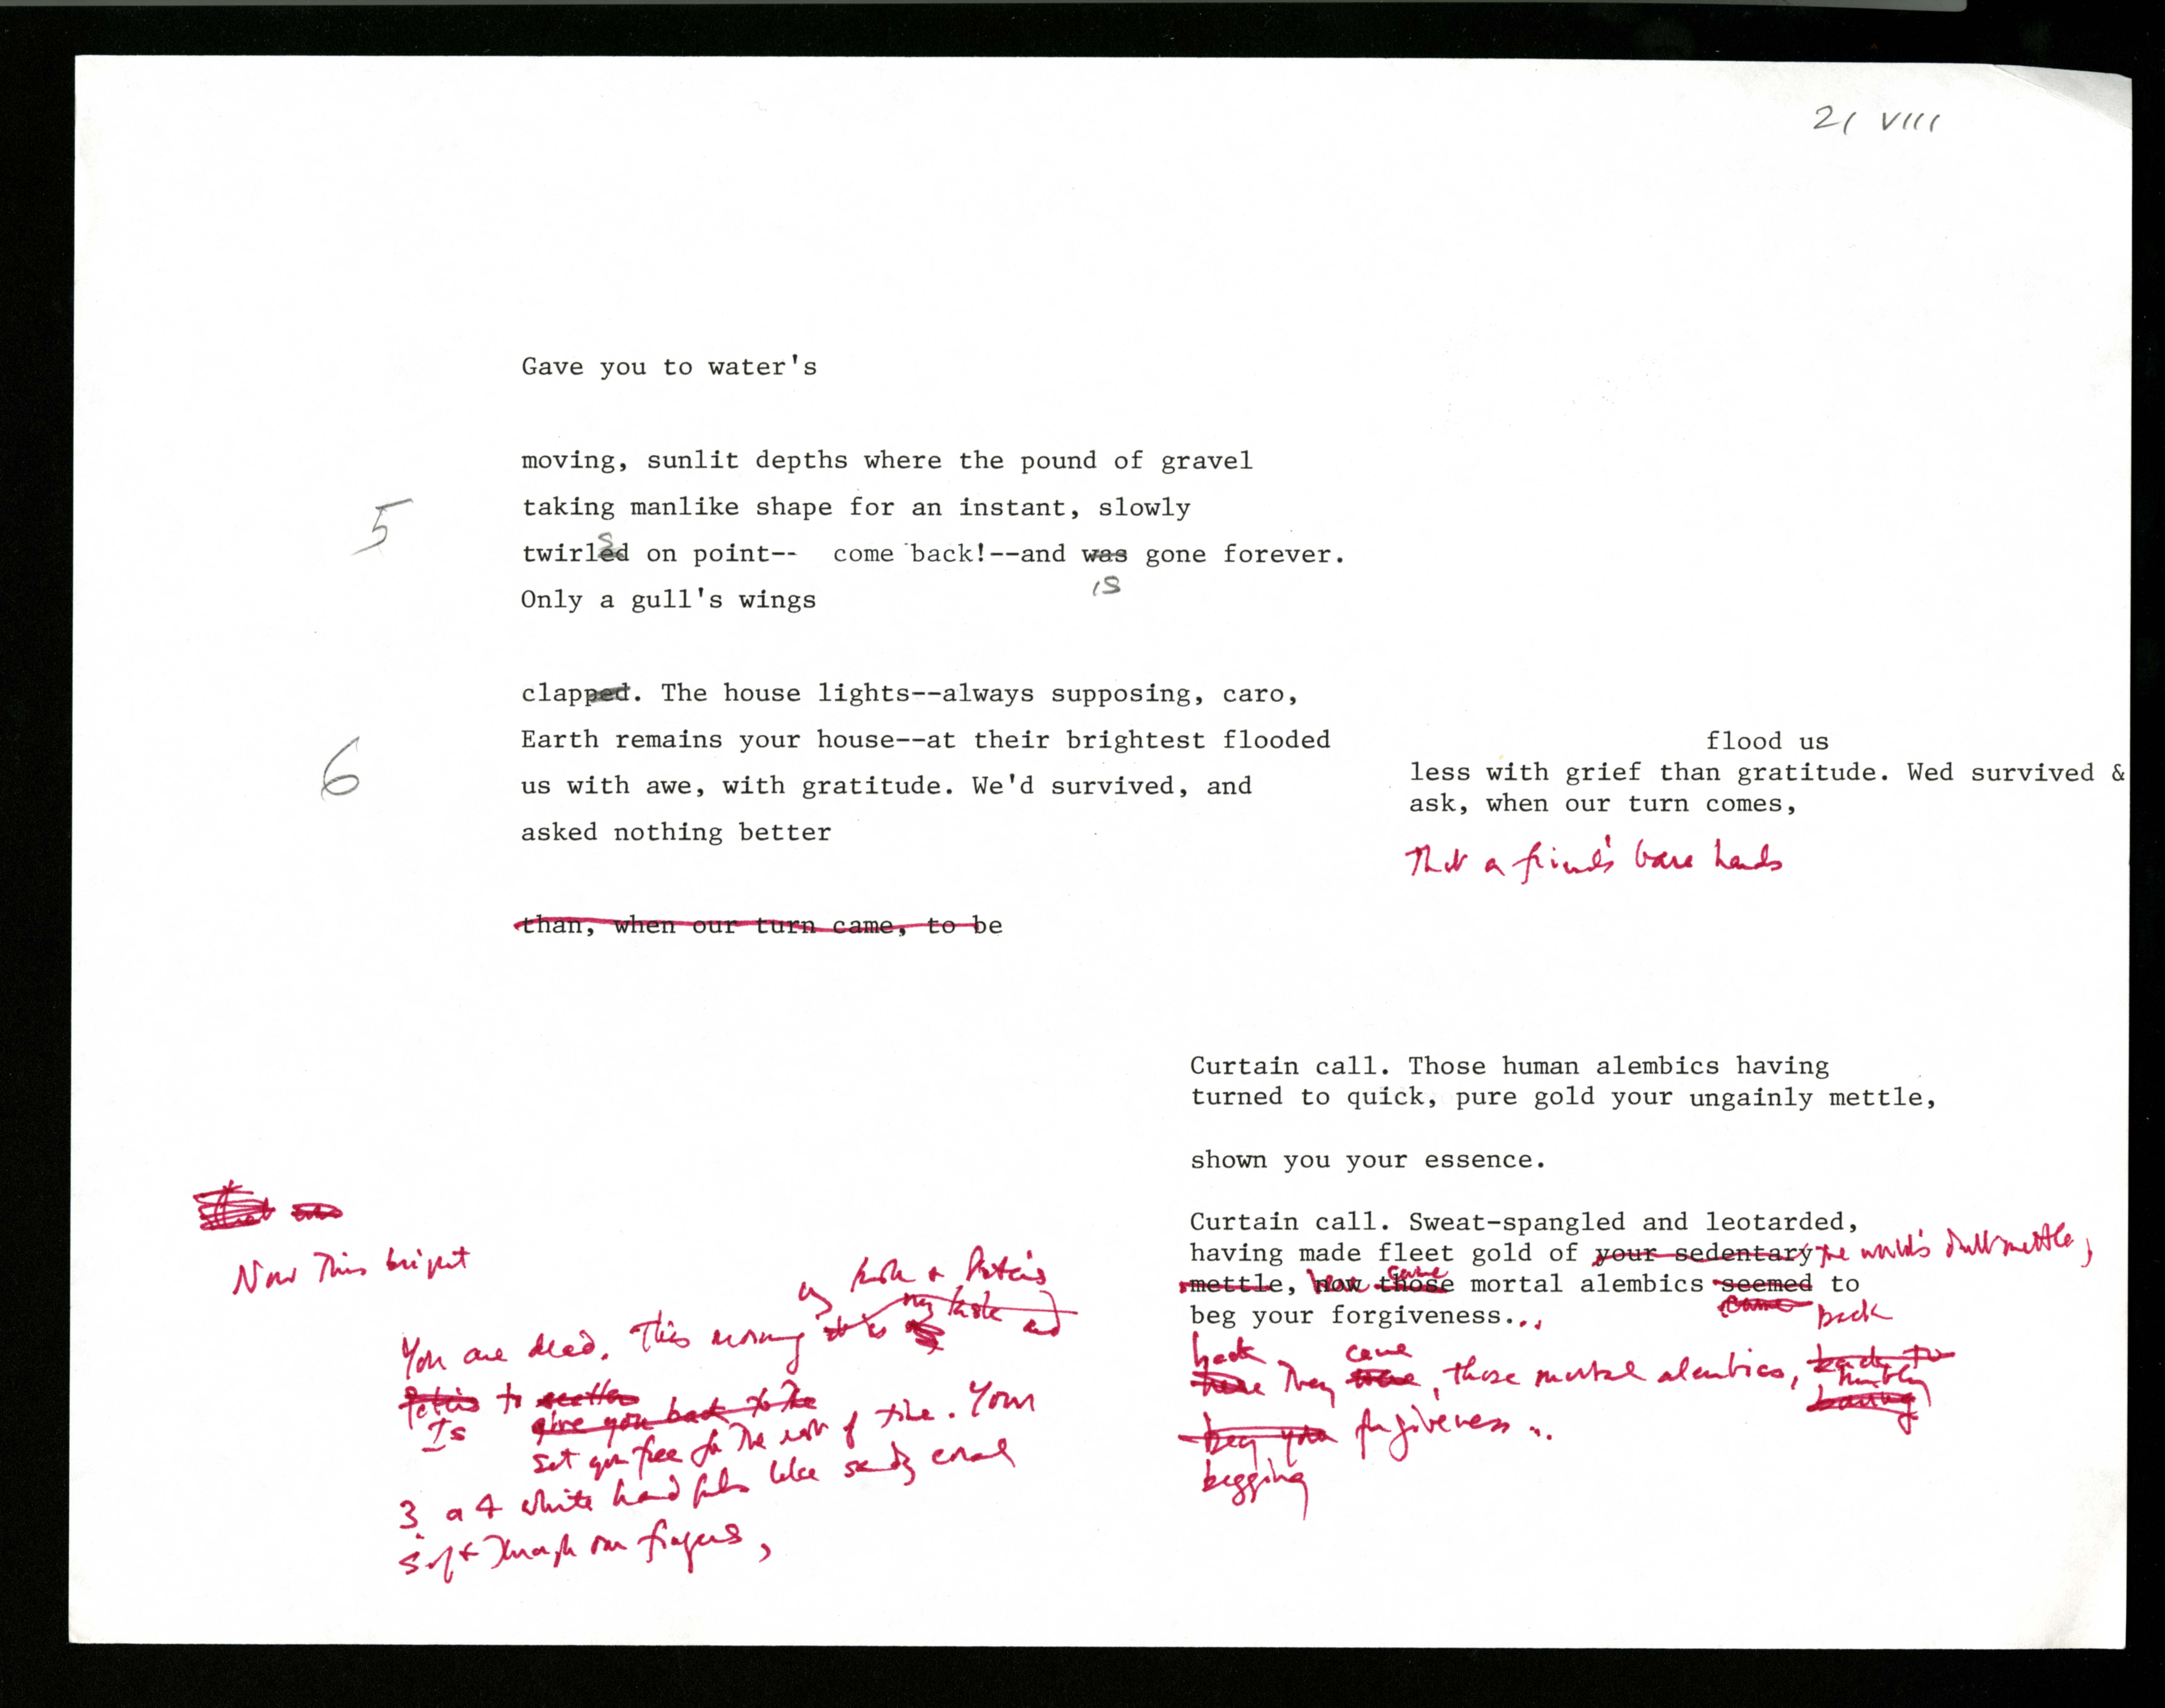 21 VIII
Gave you to water's
moving, sunlit depths where the pound of gravel
5
taking manlike shape for an instant, slowly
s
twirled on point-- come back!--and was gone forever.
is
Only a gull's wings
clapped. The house lights--always supposing, caro,
Earth remains your house--at their brightest flooded
6
us with awe, with gratitude. We'd survived, and
asked nothing better
than, when our turn came, to be
flood us
less with grief than gratitude. Wed survived &
ask, when our turn comes,
That a friend's bare hands
Curtain call. Those human alembics having
turned to quick, pure gold your ungainly mettle,
shown you your essence.
Curtain call. Sweat-spangled and leotarded,
having made fleet gold of your sedentary the world's dull mettle,
came
mettle, now those mortal alembics seemed to
came back
beg your forgiveness...
back came
They were, those mortal alembics, back to
humbly
beg your forgiveness...
begging
Now This bright
as & Peter's
my task and
You are dead. This morning it is
Peter's to
Is give you back to the
set you free for the rest of time. Your
3 or 4 white handfuls like sandy coral
sift through our fingers,